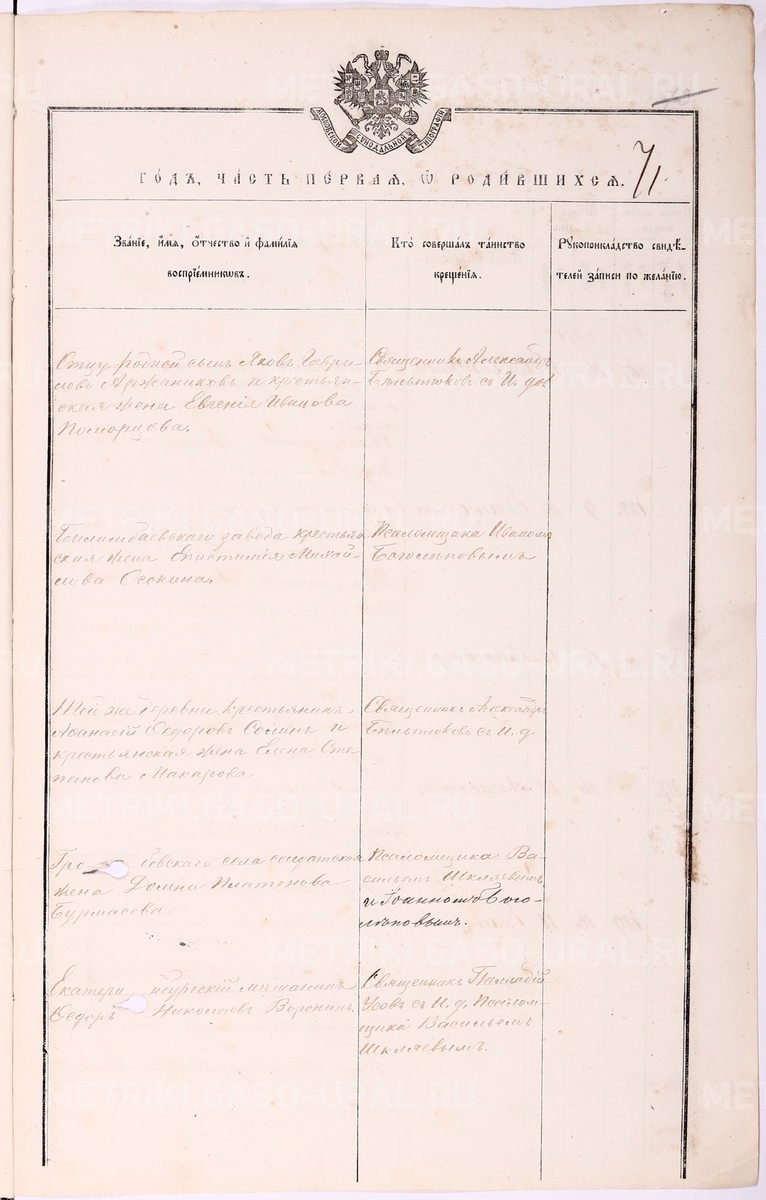 МОСКОВСКОЙ СѴНОДАЛЬНОЙ ТИПОГРАФІИ
71
ГО́ДЪ, ЧА́СТЬ ПЕ́РВАЯ, Ѡ҆ РОДИ́ВШИХСѦ.
Зва́нїе, и҆́мѧ, ѻ҆́тчество и҆ фами́лїѧ
воспрїе́мникѡвъ.
Кто̀ соверша́лъ та́инство
креще́нїѧ.
Рꙋкоприкла́дство свидѣ́-
телей за́писи по жела́нїю.
Отцу родной сынъ Яковъ Гаври-
ловъ Аржаниковъ и крестьян-
ская жена Евгенія Иванова
Поморцова.
Священникъ Александръ
Бѣльтюковъ съ И. д.
Билимбаевскаго завода крестьян
ская жена Епистимія Михай-
лова Осокина.
Псаломщика Іоанномъ
Боголѣповымъ
Той же деревни крестьянинъ
Аѳанасій Ѳедоровъ Соминъ и
крестьянская жена Елена Сте-
панова Макарова
Священникъ Александръ
Бѣльтюковъ съ И. д
Гро бовскаго села солдатская
жена Домна Платонова
Бурмасова
Псаломщика Ва-
сильемъ Шкляевымъ
и Іоанномъ Бого-
лѣповымъ.
Екатери нбургскій мѣщанинъ
Ѳедоръ Николаевъ Воронинъ.
Священникъ Палладій
Усовъ съ И. д. Псалом-
щика Васильемъ
Шкляевымъ.
METRIKI.GASO-URAL.RU